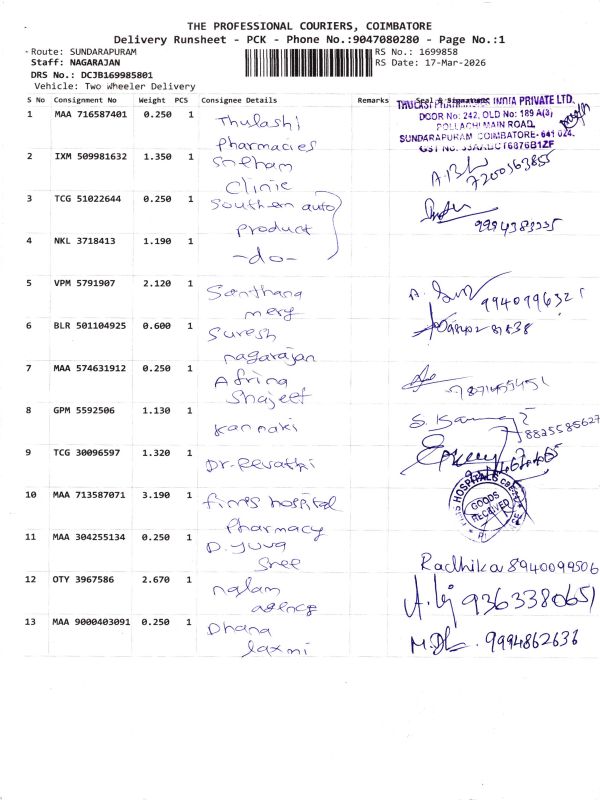 THE PROFESSIONAL COURIERS, COIMBATORE
Delivery Runsheet - PCK - Phone No.:9047080280 - Page No.:1
Route: SUNDARAPURAM
RS No.: 1699858
Staff: NAGARAJAN
RS Date: 17-Mar-2026
DRS No.: DCJB169985801
Vehicle: Two Wheeler Delivery
S No Consignment No Weight PCS Consignee Details Remarks Seal & Signature
INDIA PRIVATE LTD.
DOOR No: 242, OLD No: 189 A(3)
POLLACHI MAIN ROAD,
SUNDARAPURAM COIMBATORE- 641 024.
1 MAA 716587401 0.250 1 Thulashi
pharmacies
2 IXM 509981632 1.350 1
Clinic
7200363855
3 TCG 51022644 0.250 1 Southern auto
product
4 NKL 3718413 1.190 1 -do-
5 VPM 5791907 2.120 1 Santhana
mery
6 BLR 501104925 0.600 1 Suresh
nagarajan
7 MAA 574631912 0.250 1 Afrina
Shajeet
8 GPM 5592506 1.130 1 kannaki
8825585627
9 TCG 30096597 1.320 1 Dr.Revathi
10 MAA 713587071 3.190 1 hospital
Pharmacy
HOSPITALS
GOODS
RECEIVED
11 MAA 304255134 0.250 1 D. yuva
Sree
Radhika 8940099506
12 OTY 3967586 2.670 1 nalam
agency
9363380651
13 MAA 9000403091 0.250 1 Dhana
laxmi
9994862636